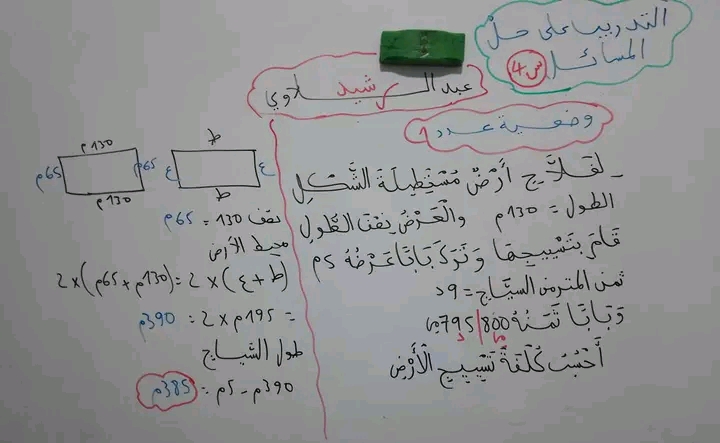 التدريب على حلّ
المسائل
س4
عبد الرشيد
وضعية عدد 1
_ لفلاّح أَرْضٌ مُسْتَطِيلَةُ الشَّكْلِ
الطول = 130م والْعَرْضُ نِصْفُ الطُّولِ
قَامَ بِتَسْيِيجِهَا وَتَرَكَ بَابًا عَرْضُهُ 5م
ثمن المتر من السيّاج = 9د
وَ بَابًا ثَمَنُهُ 795|800مي
د مي
أَحْسُبُ كُلْفَةَ تَسْيِيجِ الْأَرْضِ
ط
ع ع
ط
130م
65م 65م
130م
نصف 130 = 65م
محيط الأرض
(ط+ع) × 2 = (130م + 65م) × 2
= 195م × 2 = 390م
طول السياج
390م - 5م = 385م